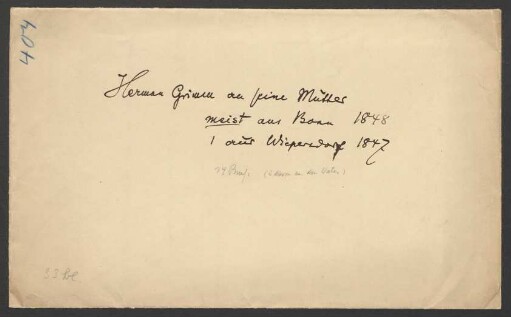 403
Herman Grimm an seine Mutter
meist aus Bonn 1848
1 aus Wiepersdorf 1847
19 Briefe (2 davon an den Vater)